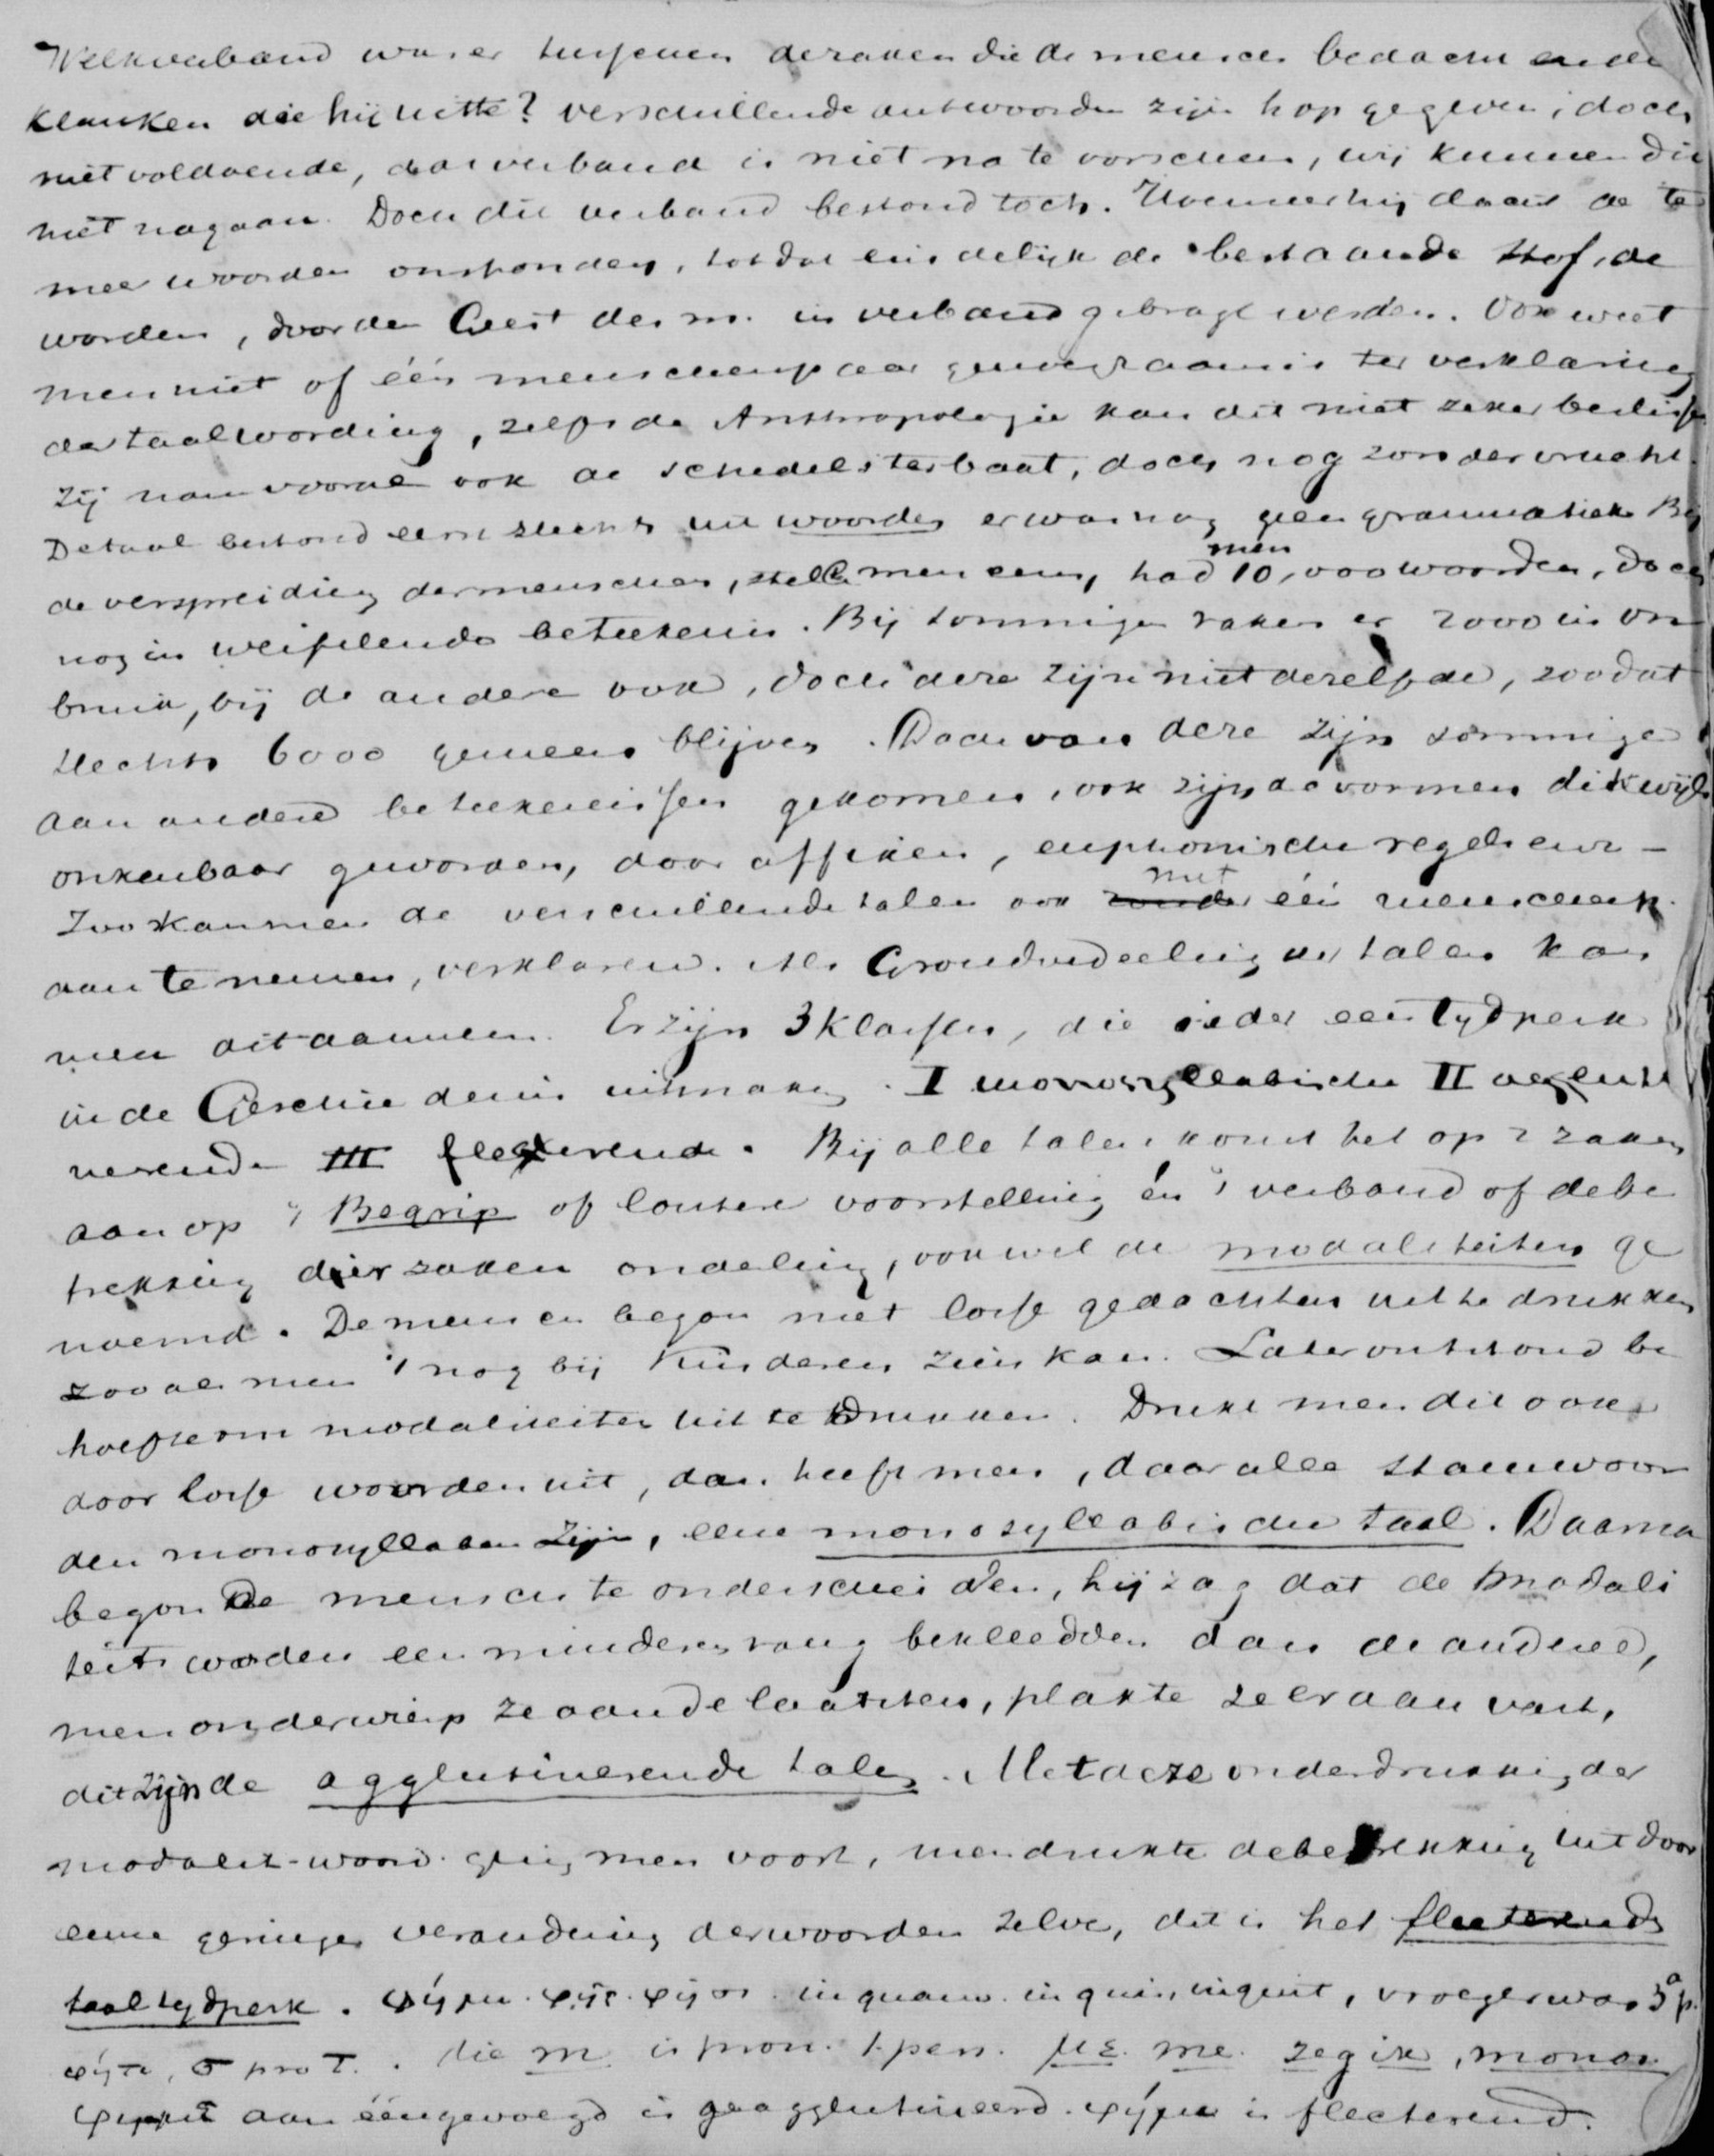 Welk verband was er tusschen de zaken die de mensch bedacht en de
klanken die hij uitte? verschillende antwoorden zijn hop gegeven, doch
niet voldoende, dat verband is niet na te vorschen, wij kunnen dit
niet nagaan. Doch dit verband bestond toch. Hoe meer hij dacht de te
meer woorden onstonden, totdat eindelijk de bestaande stof, de
worden, door den Geest des m. in verband gebragt werden. Ook weet
men niet of één menschenpaar genoegzaam is ter verklaring
der taalwording, zelfs de Anthropologie kan dit niet zeker beslissen
zij nam vooral ook de schedels ter baat, doch nog zonder vrucht.
De taal bestond eerst slechts uit woorden er was nog geen grammatica Bij
de verspreiding der menschen, stelle men eens, had men 10,000 woorden, doch
nog in weifelende beteekenis. Bij sommigen raken er 2000 in on
bruik, bij de andere ook, doch deze zijn niet dezelfde, zoodat
slechts 6000 gemeen blijven. Doch van deze zijn sommige
aan andere beteekenissen gekomen, ook zijn de vormen dikwijls
onkenbaar geworden, door affixen, euphonische regels enz -
Zoo kan men de verschillende talen ook zonder met één menschenp.
aan te nemen, verklaren. Als Grondverdeeling der talen kan
men dit aannemen. Er zijn 3 klassen, die ieder een tydperk
in de Geschiedenis uitmaken. I monosyllabische II agluti
nerende III flecterende. Bij alle talen komt het op 2 zaken
aan op 't Begrip of loutere voorstelling én 't verband of de be
trekking dier zaken onderling, ook wel de modaliteiten ge
noemd. De mensch begon met losse gedachten uit te drukken
zooals men 't nog bij Kinderen zien kan. Later ontstond be
hoefte om modaliteiten uit te drukken. Drukt men dit ook
door losse woorden uit, dan heeft men, daar alle stamwoor
den monosyllaben zijn, eene monosyllabische taal. Daarna
begon de mensch te onderscheiden, hij zag dat de modali
teits woorden een minderen rang bekleedden dan de andere,
men onderwierp ze aan de laatsten, plakte ze er aan vast,
dit zijn de agglutinerende talen. Met deze onderdrukking der
modalit-woord. ging men voort, men drukte de betrekking uit door
eene geringe verandering der woorden zelve, dit is het flecterende
taaltydperk. φήμι. φῄς. φησι. inquam. inquis, inquit, vroeger was 3ᵃ p.
φητι, σ pro τ. die m is pron. 1. pers. με. me. zeg ik, monos.
aan ééngevoegd is geagglutineerd. φήμι is flecterend.